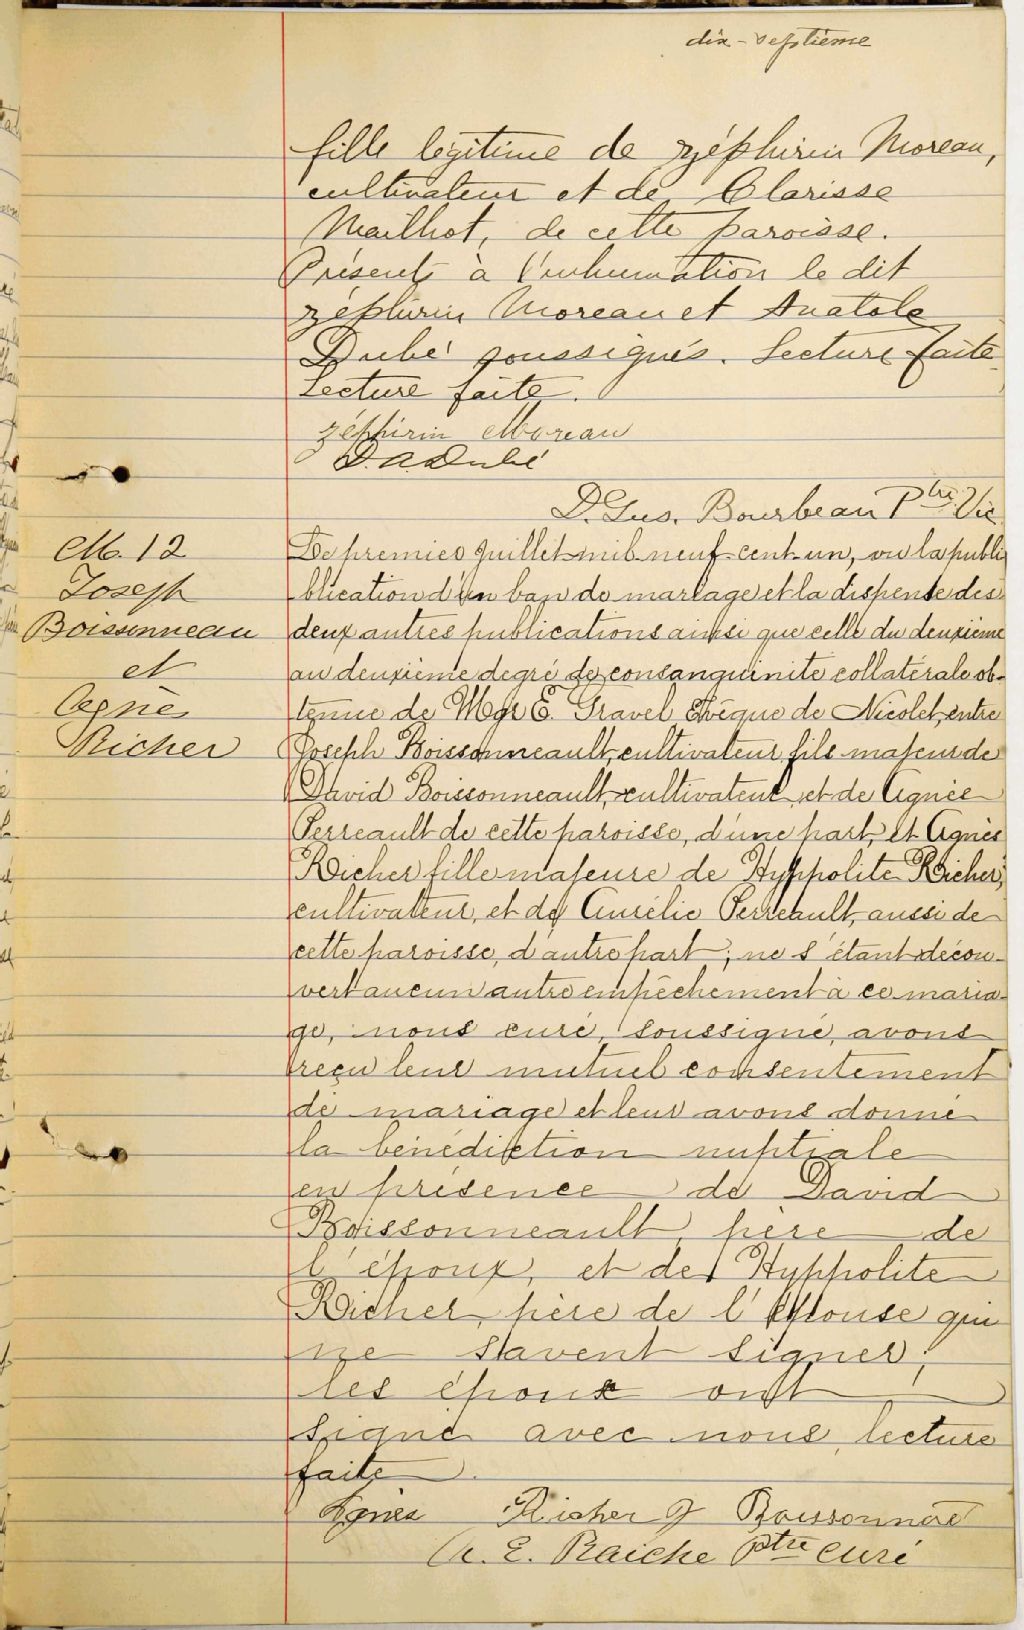 dix-septième
fille légitime de zéphirin Moreau,
cultivateur et de Clarisse
Mailhot, de cette paroisse.
Présents à l'inhumation le dit
zéphirin Moreau et Anatole
Dubé soussignés. Lecture faite
Lecture faite.
zéphirin Moreau
D. A. Dubé
D. Gus. Bourbeau Ptre Vic
M. 12
Joseph
Boissonneau
et
Agnès
Richer
Le premier Juillet mil neuf cent-un, vu la publi
blication d'un ban de mariage et la dispense des
deux autres publications ainsi que celle du deuxième
au deuxième degré de consanguinite collatérale ob-
tenue de Mgr E. Gravel Evêque de Nicolet, entre
Joseph Boissonneault, cultivateur, fils majeur de
David Boissonneault, cultivateur, et de Agnès
Perreault de cette paroisse, d'une part, et Agnès
Richer fille majeure de Hyppolite Richer,
cultivateur, et de Aurélie Perreault, aussi de
cette paroisse, d'autre part; ne s'étant décou-
vert aucun autre empêchement à ce maria-
ge, nous curé, soussigné, avons
reçu leur mutuel consentement
de mariage et leur avons donné
la bénédiction nuptiale
en présence de David
Boissonneault, père de
l'époux, et de Hyppolite
Richer, père de l'épouse qui
ne savent signer;
les époux ont
signé avec nous, lecture
faite.
Agnès Richer J Boissonneau
A. E. Raiche Ptre curé